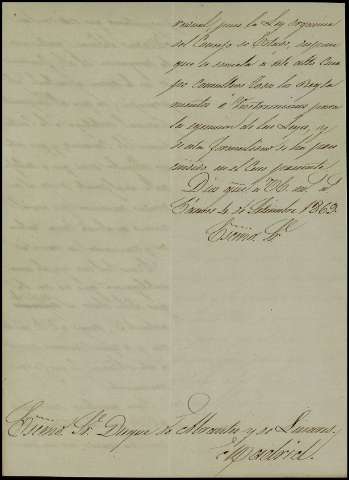 pues la Ley orgánica
del Consejo de Estado,
que la consulta á este alto Cuer
po Consultivo todos los Regla
mentos é Instrucciones para
la ejecucion de las Leyes, y
de esta formalidad se ha pres
cindido en el caso presente.
Dios gue. á V.E. m.s a.s
Linares 4 de Setiembre 1863.
Exmo. Sr.
Exmo. Sr. Duque de Abrantes y de Linares,
Madrid.